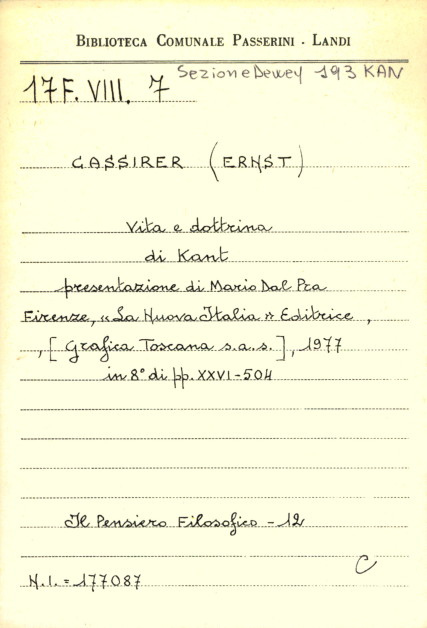 BIBLIOTECA COMUNALE PASSERINI - LANDI
Sezione Dewey 193 KAN
17 F. VIII. 7
CASSIRER (ERNST)
Vita e dottrina
di Kant
presentazione di Mario Dal Pra
Firenze, «La Nuova Italia» Editrice,
, [Grafica Toscana s.a.s.], 1977
in 8° di pp. XXVI-504
Il Pensiero Filosofico - 12
C
N.I. = 177087